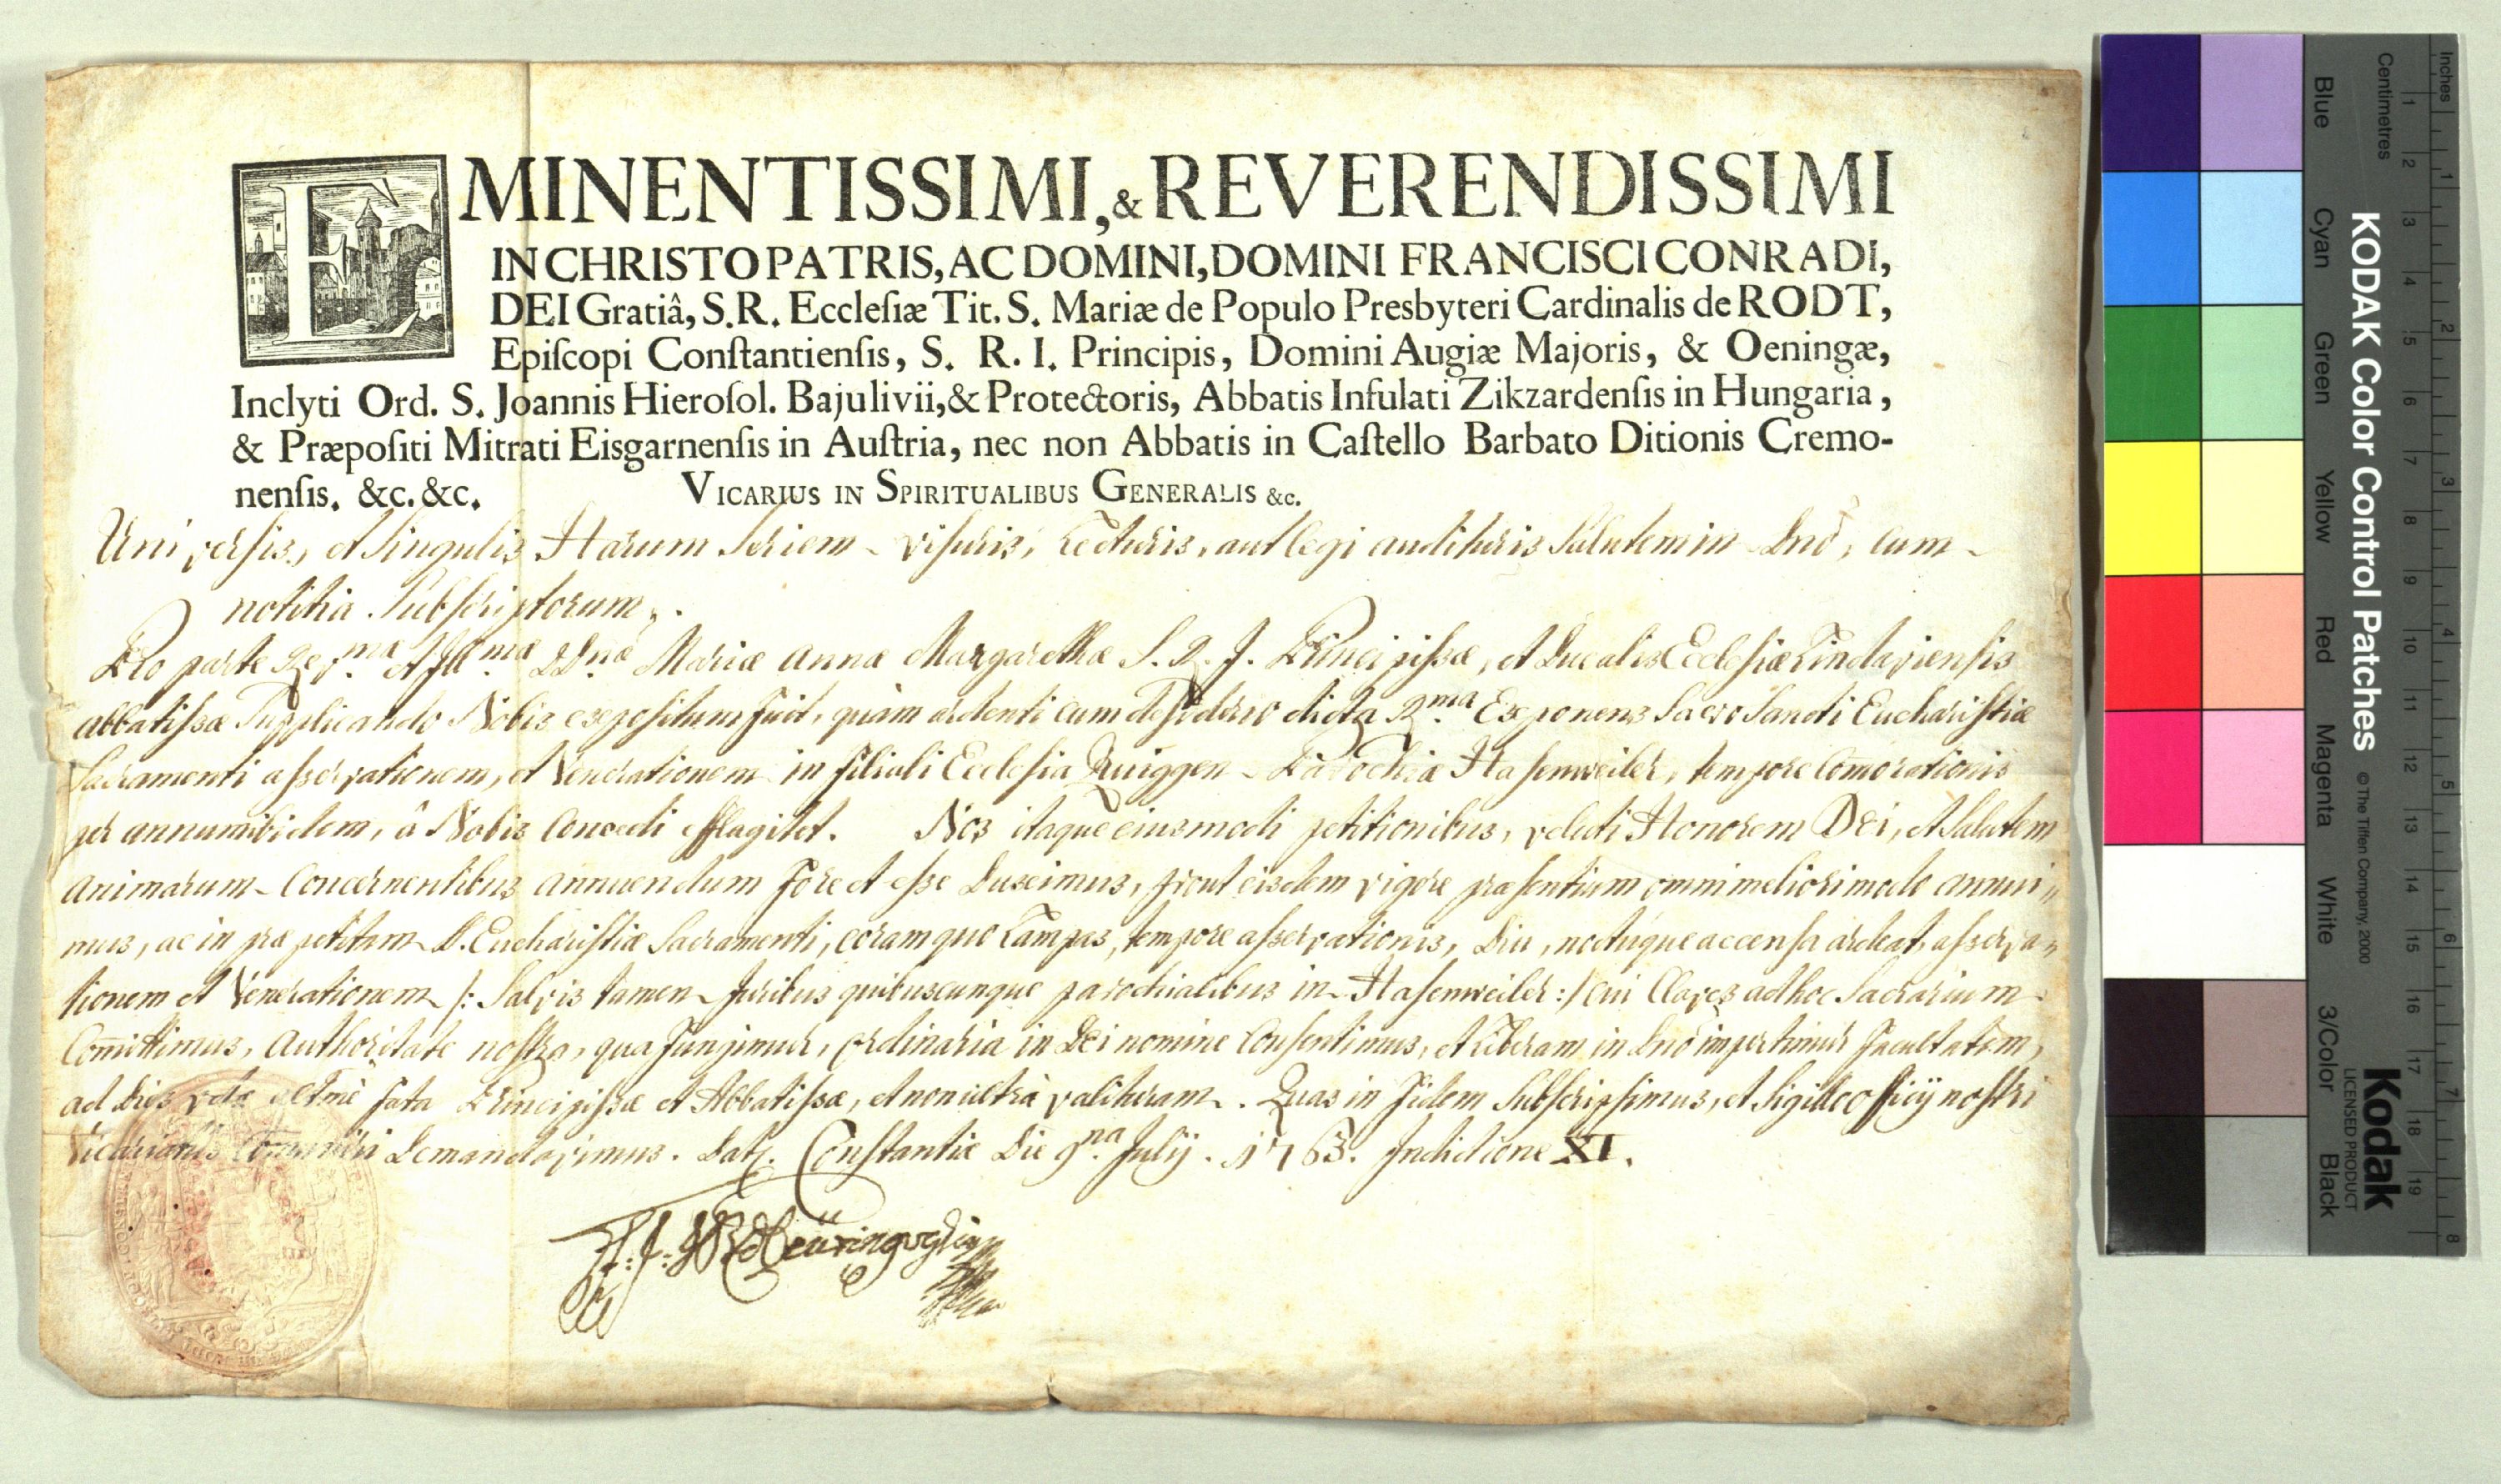 EMINENTISSIMI, & REVERENDISSIMI
IN CHRISTO PATRIS, AC DOMINI, DOMINI FRANCISCI CONRADI,
DEI Gratiâ, S.R. Eccleſiæ Tit. S. Mariæ de Populo Presbyteri Cardinalis de RODT,
Epiſcopi Conſtantienſis, S. R. I. Principis, Domini Augiæ Majoris, & Oeningæ,
Inclyti Ord. S. Joannis Hieroſol. Bajulivii, & Protectoris, Abbatis Infulati Zikzardenſis in Hungaria,
& Præpoſiti Mitrati Eisgarnenſis in Auſtria, nec non Abbatis in Caſtello Barbato Ditionis Cremo-
nenſis. &c. &c. VICARIUS IN SPIRITUALIBUS GENERALIS &c.
Universis, et Singulis Harum Seriem visuris, Lecturis, aut legi audituris Salutem in Dnō, cum
notitia Subscriptorum.
Pro parte Rev.mæ et Ill.mæ Mariæ Annæ Margarethæ S. R. J. Principissæ, et Ducalis Ecclesiæ Lindaviensis
Abbatissæ Supplicando Nobis expositum fuit, quàm ardenti cum desiderio dicta R.ma Exponens Sacro Sancti Eucharistiæ
Sacramenti asservationem, et Venerationem in filiali Ecclesia Ruiggen Parochiæ Hasenweiler, tempore Comorationis
per annum ibidem, â Nobis Concedi efflagitet. Nos itaque eiusmodi petitionibus, veluti Honorem DEi, et Salutem
Animarum Concernentibus annuendum fore et esse Duximus, prout eisdem vigore præsentium omni meliori modo annui„
mus, ac in præpetitam D. Eucharistiæ Sacramenti, coram quo Lampas, tempore asservationis, Diu, noctúque accensa ardeat, asserva„
tionem et Venerationem /: Salvis tamen Juribus quibuscunque parochialibus in Hasenweiler :/ cui Claves ad hoc Sacrarium
Comittimus, Authoritate nostra, qua fungimur, ordinaria in Dei nomine Consentimus, et Liberam in Dnō impertimur facultatem,
ad Dies vitæ fatæ Principissæ et Abbatissæ, et non ultrà valituram. Quas in fidem Subscripsimus, et Sigillo officij nostri
Vicariatûs Comuniri Demandavimus. Dat. Constantiæ Die 9.na Julij. 1763. Indictione XI.
Inches
Centimetres
1 2 3 4 5 6 7 8
1 2 3 4 5 6 7 8 9 10 11 12 13 14 15 16 17 18 19
KODAK Color Control Patches
© The Tiffen Company, 2000
Kodak
LICENSED PRODUCT
Blue
Cyan
Green
Yellow
Red
Magenta
White
3/Color
Black